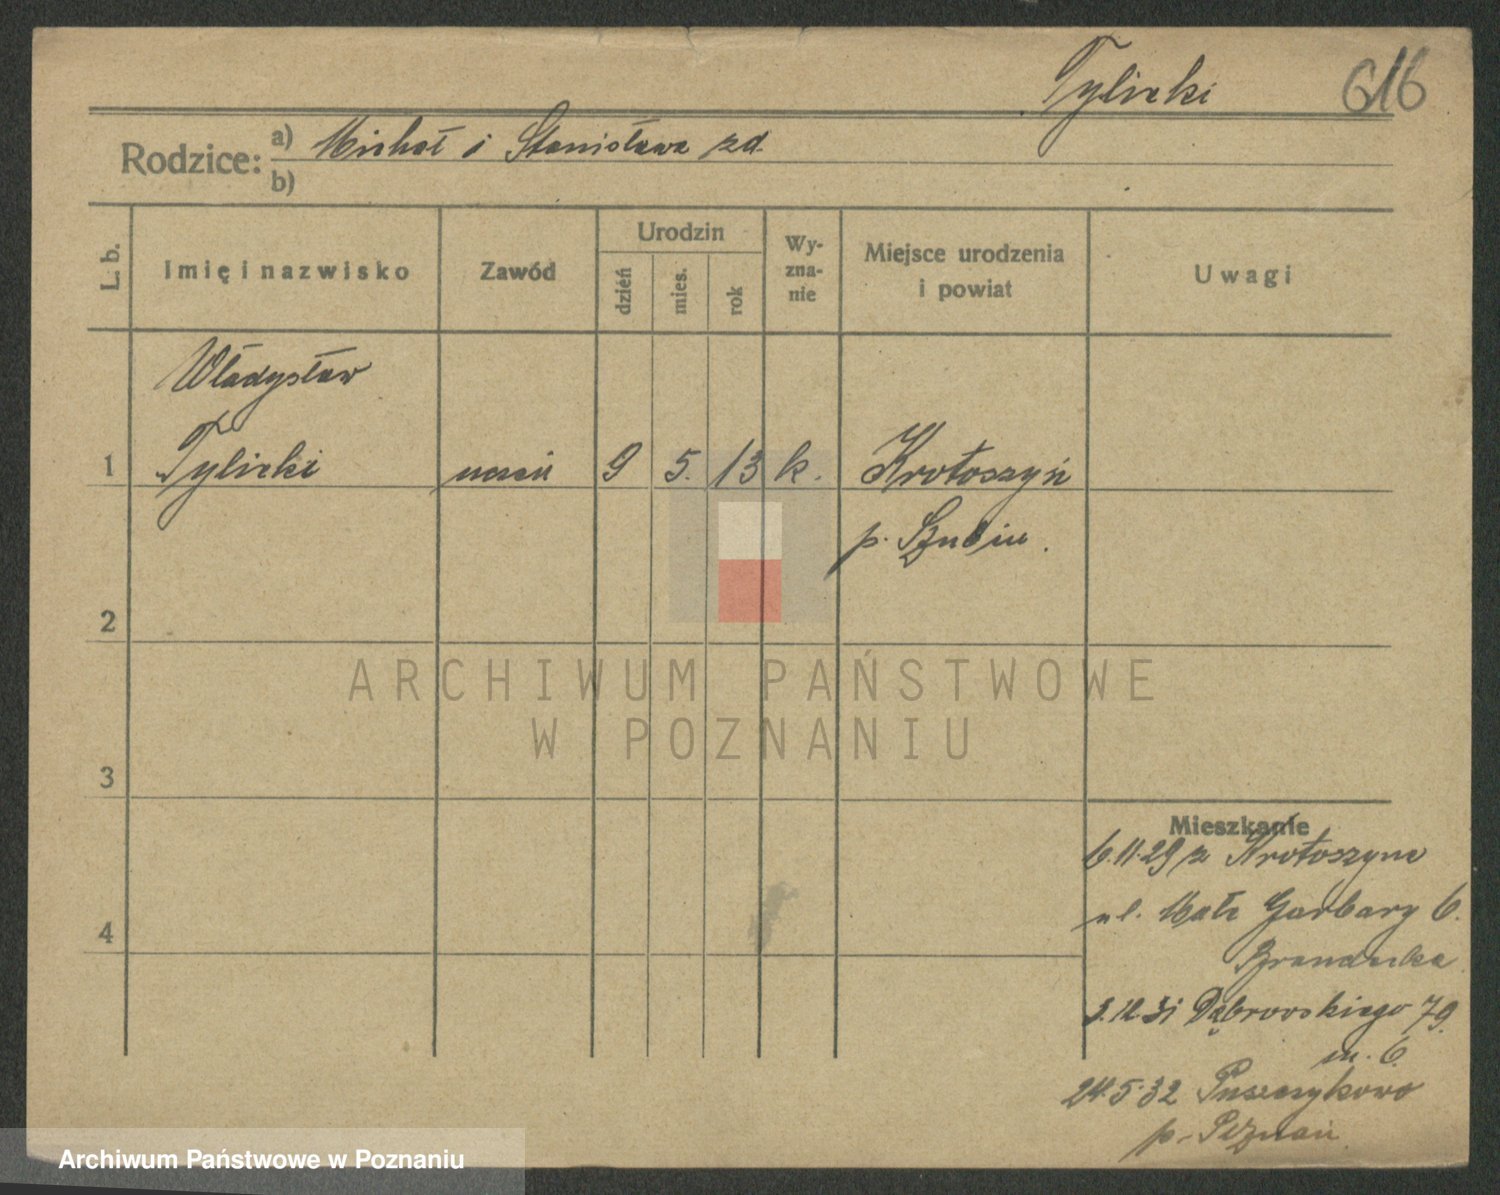 Tylicki 616
Rodzice: a) Michał i Stanisława zd.
b)
L. b.
Imię i nazwisko
Zawód
Urodzin
dzień
mies.
rok
Wy-
zna-
nie
Miejsce urodzenia
i powiat
Uwagi
Władysław
1 Tylicki uczeń 9 5. 13 k. Krotoszyn
p. Szubin.
2
3
4
Mieszkanie
6.11.29 z Krotoszyna
ul. Małe Garbary 6.
3.12.31 Dąbrowskiego 79.
m. 6.
24.5.32 Puszczykowo
p. Poznań
ARCHIWUM PAŃSTWOWE
W POZNANIU
Archiwum Państwowe w Poznaniu